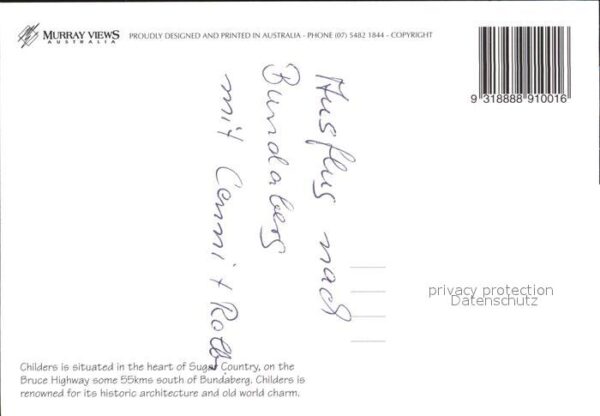 MURRAY VIEWS
AUSTRALIA
PROUDLY DESIGNED AND PRINTED IN AUSTRALIA - PHONE (07) 5482 1844 - COPYRIGHT
9 318888 910016
Ausflug nach
Bundaberg
mit Conni +
privacy protection
Datenschutz
Childers is situated in the heart of Sugar Country, on the
Bruce Highway some 55kms south of Bundaberg. Childers is
renowned for its historic architecture and old world charm.